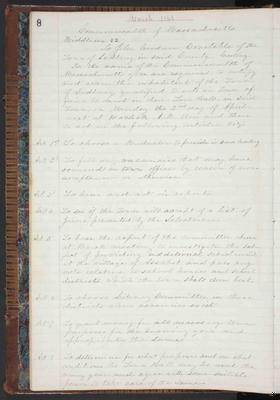 8
March 1866
Commonwealth of Massachusetts
Middlesex SS
To John Goodnow Constable of the
Town of Sudbury in said County Greeting
In the name of the Commonwealth of
Massachusetts you are required to notify
and warn the inhabitants of the Town
of Sudbury qualified to vote in Town af
fairs to meet in their Town Hall in said
Town on Monday the 2nd day of April
next at o'clock A.M. then and there
to act on the following articles viz
Art 1st To choose a Moderator to preside in said meeting
Art 2d To fill any vacancies that may have
occurred in Town officers by reason of non
acceptance or otherwise
Art 3d To hear and act on reports
Art 4 To see if the Town will accept of a list of
jurors presented by the Selectmen
Art 5 To hear the report of the committee chosen
at March meeting to investigate the sub
ject of providing additional school room
at the and pass any
vote relative to school houses and school
districts which the town shall deem best
Art 6 To choose School Committee in those
districts where
Art 7 To grant money for all necessary town
purposes for the ensuing year and
appropriate the same
Art 8 To determine for what purposes and on what
conditions the Town Hall may be used the
ensuing year and agree with some suitable
person to take care of the same